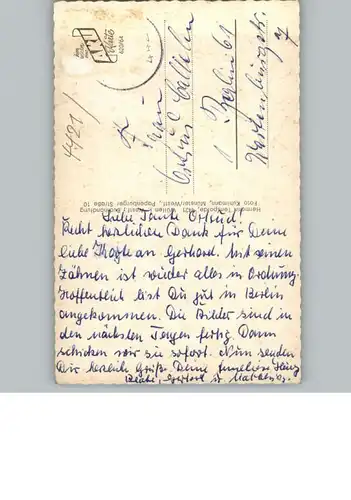 Liebe Tante Ortrud!
Recht herzlichen Dank für Deine
liebe Karte an Gerhard. Mit seinen
Zähnen ist wieder alles in Ordnung.
Hoffentlich bist Du gut in Berlin
angekommen. Die Bilder sind in
den nächsten Tagen fertig. Dann
schicken wir sie sofort. Nun senden
Dir herzlich Grüße Deine Anneliese Heinz
Beate, Gerhard u. Matthias.
Frau
Ortrud
1 Berlin 61
7
4421/
Foto Kühlmann, Münster/Westf., Papenburger Straße 10